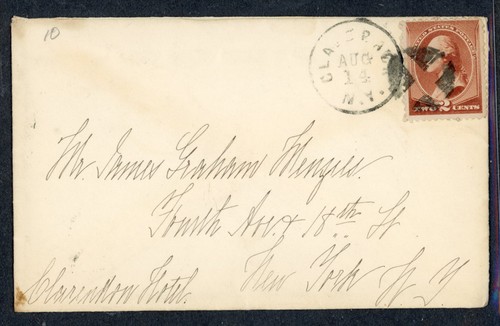 10
AUG
14
N.Y.
UNITED STATES POSTAGE
TWO 2 CENTS
Mr. James Graham Menzies
Fourth Ave & 18th St
New York N Y
Clarendon Hotel.